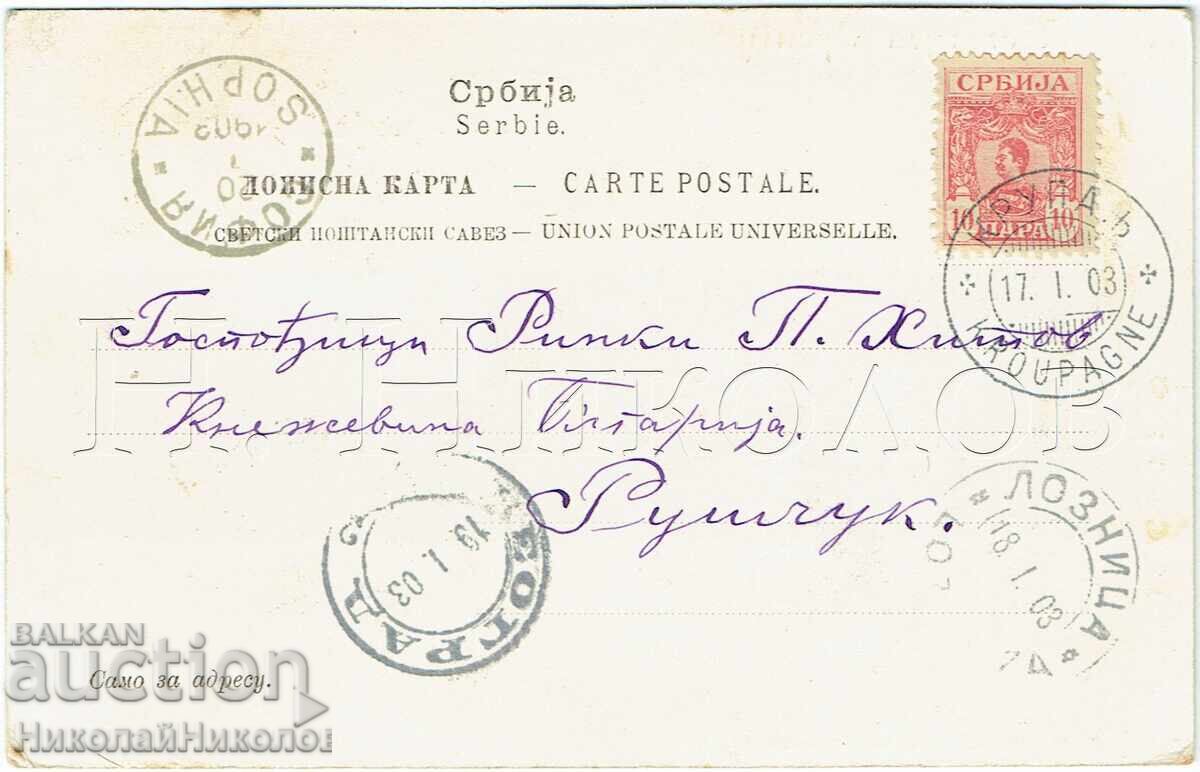 Србија
Serbie.
ДОПИСНА КАРТА — CARTE POSTALE.
СВЕТСКИ ПОШТАНСКИ САВЕЗ — UNION POSTALE UNIVERSELLE.
СРБИЈА
10 ПАРА 10
КРУПАЊ
17. I. 03
KROUPAGNE
СОФИЯ * SOPHIA *
20
1
1903
Госпођици Ринки П. Хитов
Кнежевина Бугарија.
Рушчук.
БЕОГРАД
19 I 03
* ЛОЗНИЦА *
18 I 03
Н. НИКОЛОВ
Само за адресу.
BALKAN
auction
НиколайНиколов